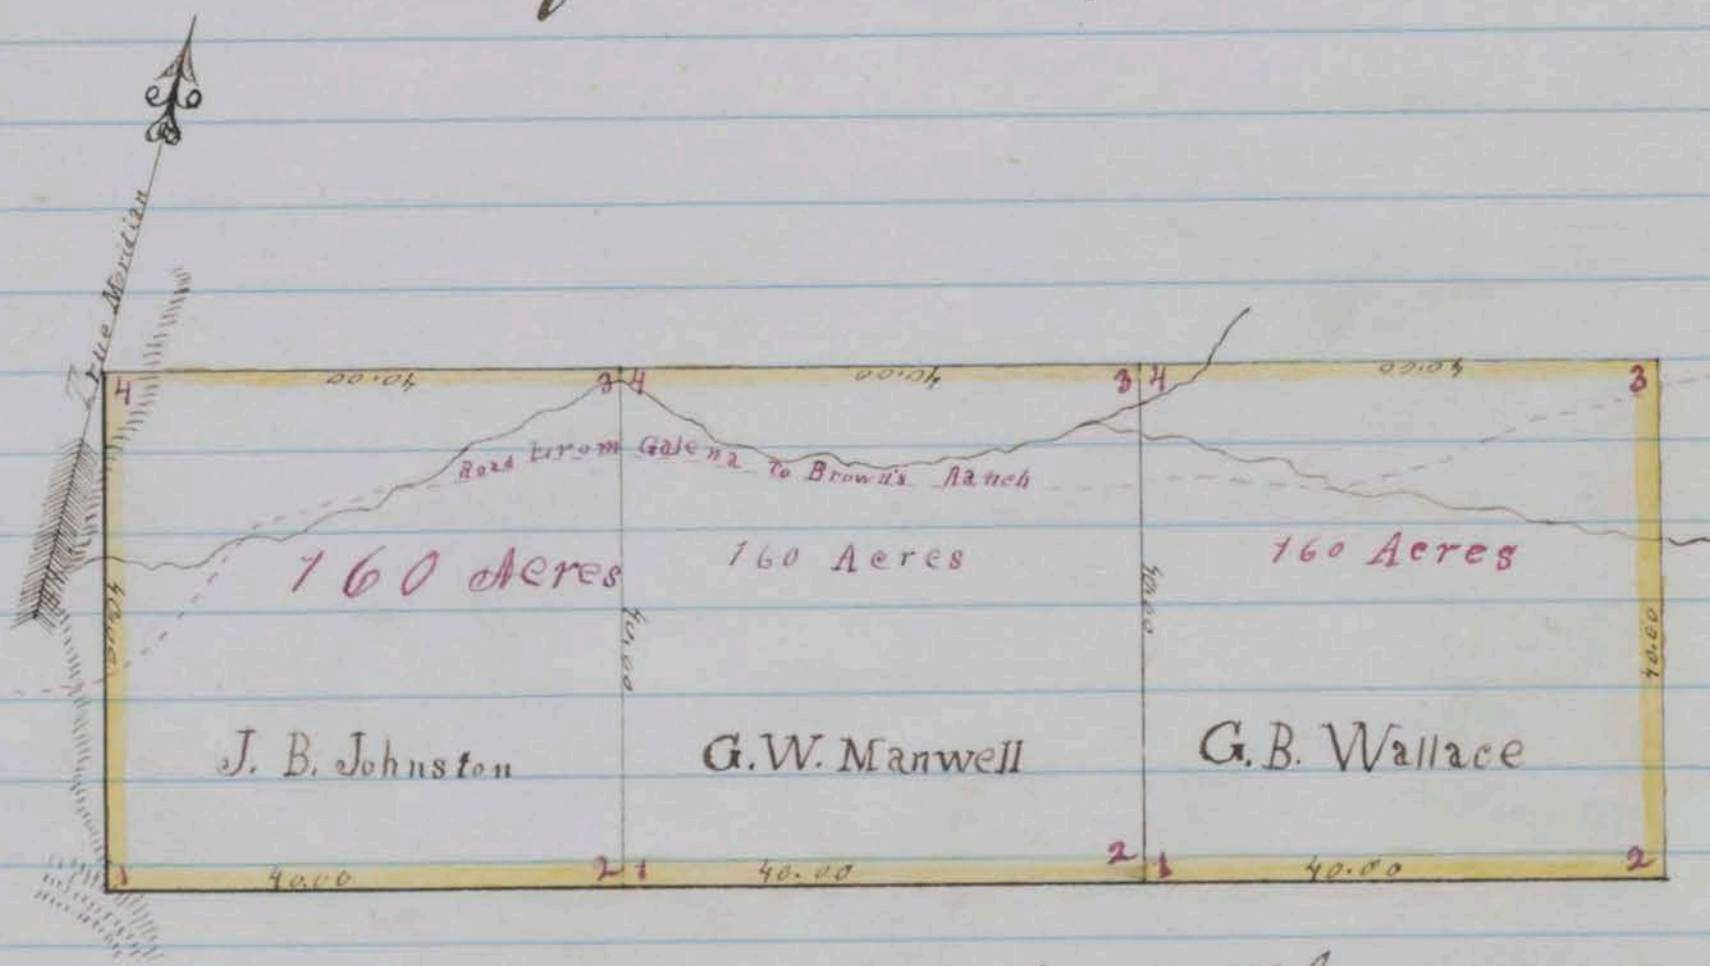 True Meridian
4 40.00 3 4 40.00 3 4 40.00 3
Road from Galena To Brown's Ranch
160 Acres 160 Acres 160 Acres
40.00 40.00 40.00 40.00
J. B. Johnston G. W. Manwell G. B. Wallace
1 40.00 2 1 40.00 2 1 40.00 2